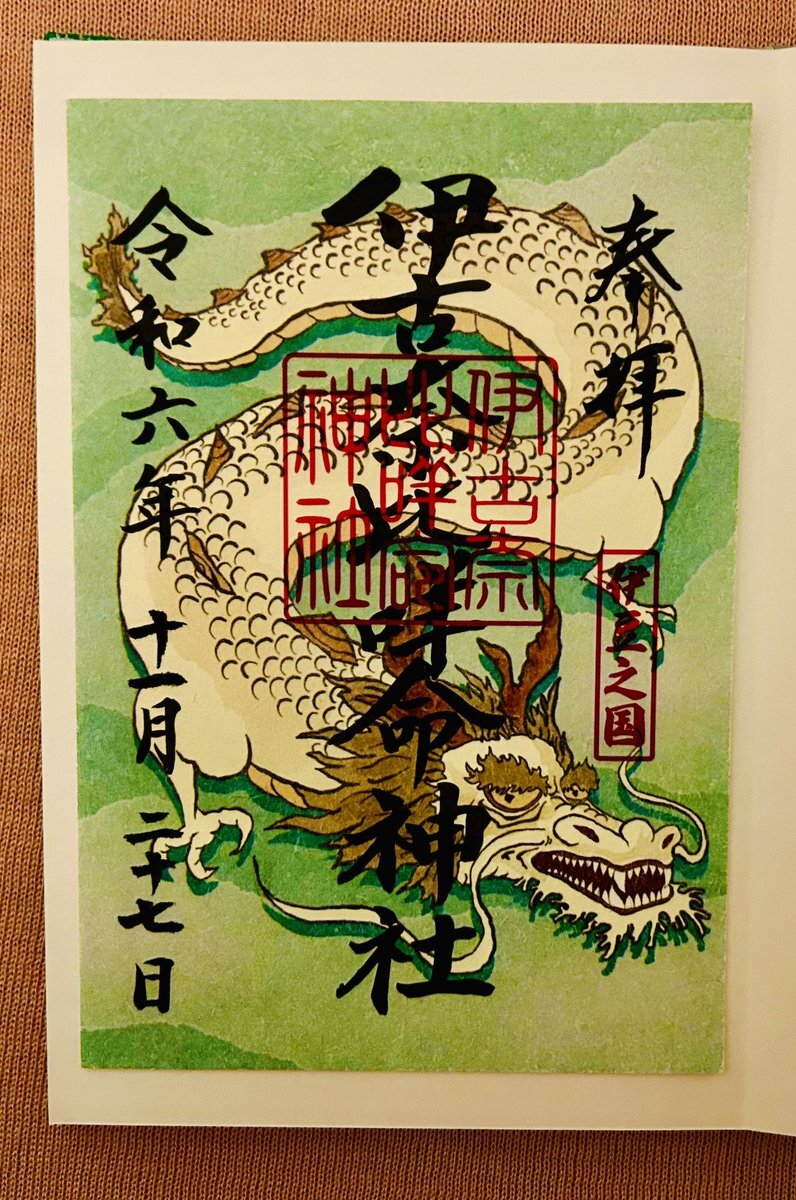 奉拝
伊豆之国
伊古奈比咩命神社
伊古奈
比咩命
神社
令和六年 十一月 二十七日